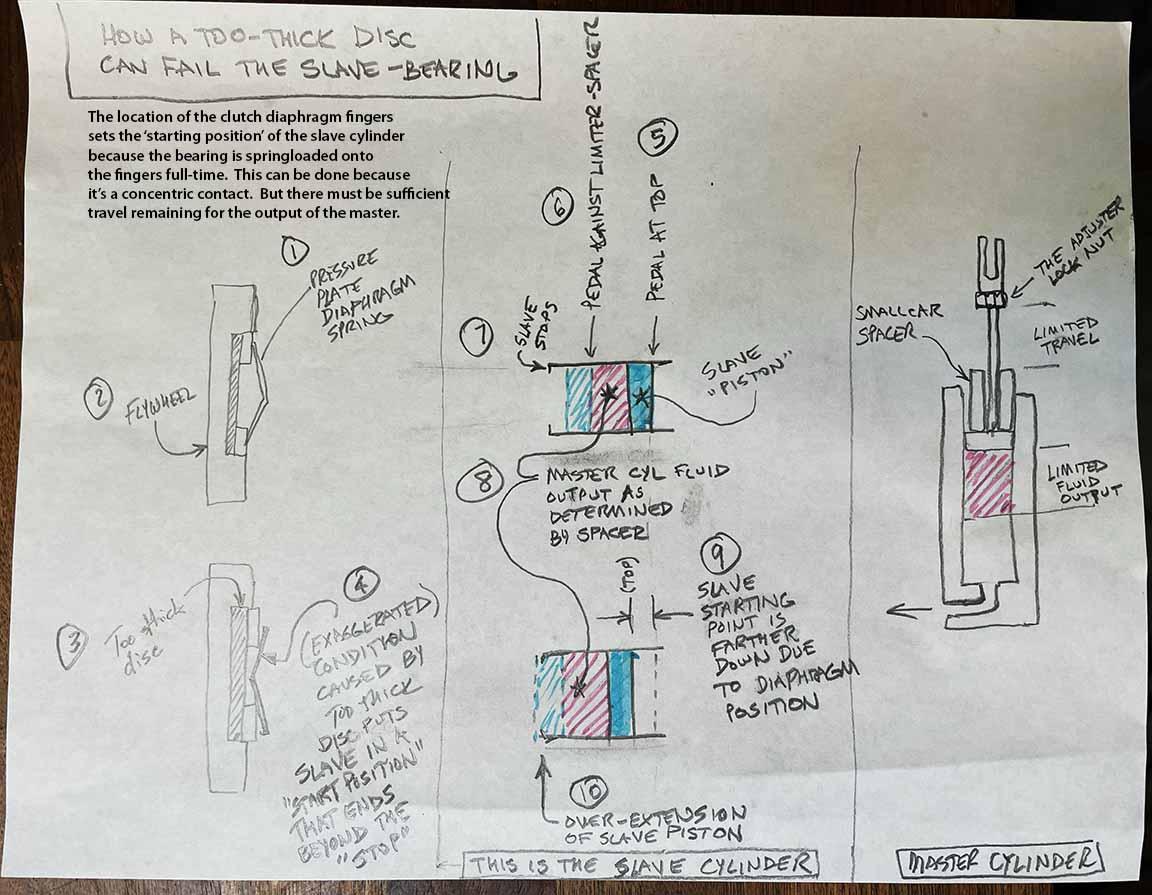 HOW A TOO-THICK DISC
CAN FAIL THE SLAVE-BEARING
The location of the clutch diaphragm fingers
sets the ‘starting position’ of the slave cylinder
because the bearing is springloaded onto
the fingers full-time.  This can be done because
it’s a concentric contact.  But there must be sufficient
travel remaining for the output of the master.
1
PRESSURE
PLATE
DIAPHRAGM
SPRING
2
FLYWHEEL
3
Too thick
disc
4
(EXAGGERATED)
CONDITION
CAUSED BY
TOO THICK
DISC PUTS
SLAVE IN A
"START POSITION"
THAT ENDS
BEYOND THE
"STOP"
5
PEDAL AT TOP
6
PEDAL AGAINST LIMITER-SPACER
7
SLAVE
STOPS
SLAVE
"PISTON"
8
MASTER CYL FLUID
OUTPUT AS
DETERMINED
BY SPACER
9
(TOP)
SLAVE
STARTING
POINT IS
FARTHER
DOWN DUE
TO DIAPHRAGM
POSITION
10
OVER-EXTENSION
OF SLAVE PISTON
THIS IS THE SLAVE CYLINDER
THE ADJUSTER
LOCK NUT
SMALLCAR
SPACER
LIMITED
TRAVEL
LIMITED
FLUID
OUTPUT
MASTER CYLINDER